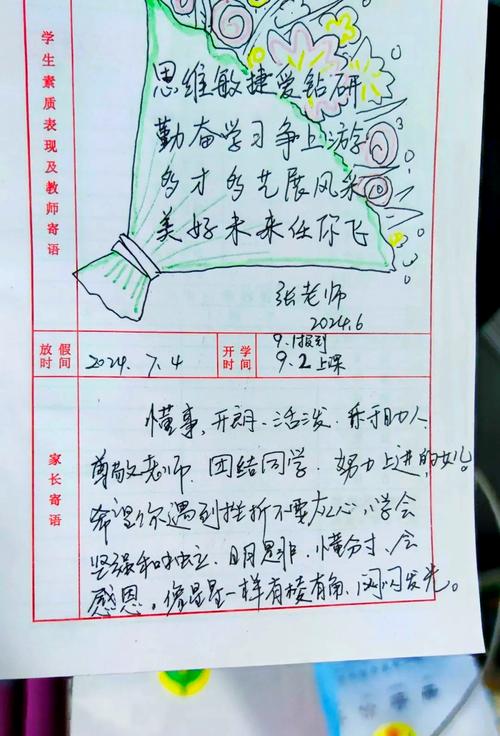 学生素质表现及教师寄语
思维敏捷爱钻研
勤奋学习争上游
多才多艺展风采
美好未来任你飞
张老师
2024.6
放假时间
2024.7.4
开学时间
9.1报到
9.2上课
家长寄语
懂事,开朗、活泼、乐于助人、
尊敬老师、团结同学、努力上进的女儿。
希望你遇到挫折不要灰心,学会
坚强和独立、明是非、懂分寸、会
感恩。像星星一样有棱有角、闪闪发光。